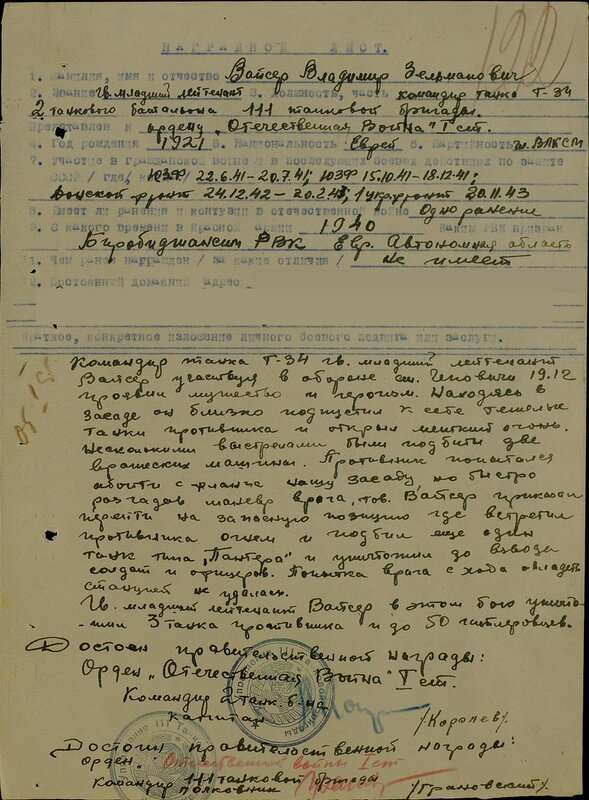 НАГРАДНОЙ ЛИСТ.
1. Фамилия, имя и отчество Вайсер Владимир Зельманович
2. Звание гв. младший лейтенант 3. Должность, часть командир танка Т-34
2 танкового батальона 111 танковой бригады.
Представлен к ордену „Отечественная Война" I ст.
4. Год рождения 1921 5. Национальность Еврей 6. Партийность чл. ВЛКСМ
7. Участие в гражданской войне и в последующих боевых действиях по защите
СССР /где, к ЮЗФ 22.6.41 - 20.7.41; ЮЗФ 15.10.41 - 18.12.41;
Донской фронт 24.12.42 - 20.2.43; 1 Укр. фронт 20.11.43
8. Имеет ли ранения и контузии в отечественной войне Одно ранение
9. С какого времени в Красной армии 1940 каким РВК призван
Биробиджанским РВК Евр. Автономная область
Чем ранее награжден /за какие отличия/ не имеет
Постоянный домашний адрес
Краткое, конкретное изложение личного боевого подвига или заслуг.
Командир танка Т-34 гв. младший лейтенант
Вайсер участвуя в обороне ст. Чеповичи 19.12
проявил мужество и героизм. Находясь в
засаде он близко подпустил к себе тяжелые
танки противника и открыл меткий огонь.
Несколькими выстрелами были подбиты две
вражеских машины. Противник попытался
обойти с фланга нашу засаду, но быстро
разгадав маневр врага, тов. Вайсер приказал
перейти на запасную позицию где встретил
противника огнем и подбил еще один
танк типа „Пантера" и уничтожил до взвода
солдат и офицеров. Попытка врага с хода овладеть
станцией не удалась.
Гв. младший лейтенант Вайсер в этом бою уничто-
-жил 3 танка противника и до 50 гитлеровцев.
Достоин правительственной награды:
Орден „Отечественная Война" I ст.
Командир 2 танк. б-на
капитан /Королев/
Достоин правительственной награды:
орден Отечественная войны I ст
Командир 111 танковой бригады
полковник /Грановский/